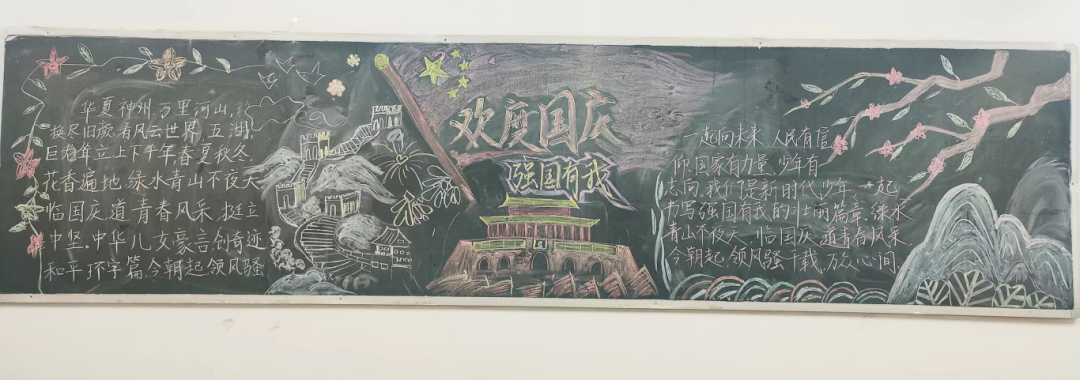 华夏神州万里河山,
换尽旧颜看风云世界五湖
巨龙年立上下千年春夏秋冬,
花香遍地绿水青山不夜天
临国庆道青春风采,挺立
中坚,中华儿女豪言创奇迹
和平环宇篇今朝起领风骚
欢度国庆
强国有我
一起向未来,人民有信
仰,国家有力量,少年有
志向,我们是新时代少年一起
书写强国有我的壮丽篇章,绿水
青山不夜天,临国庆道青春风采,
今朝起领风骚千载放心间